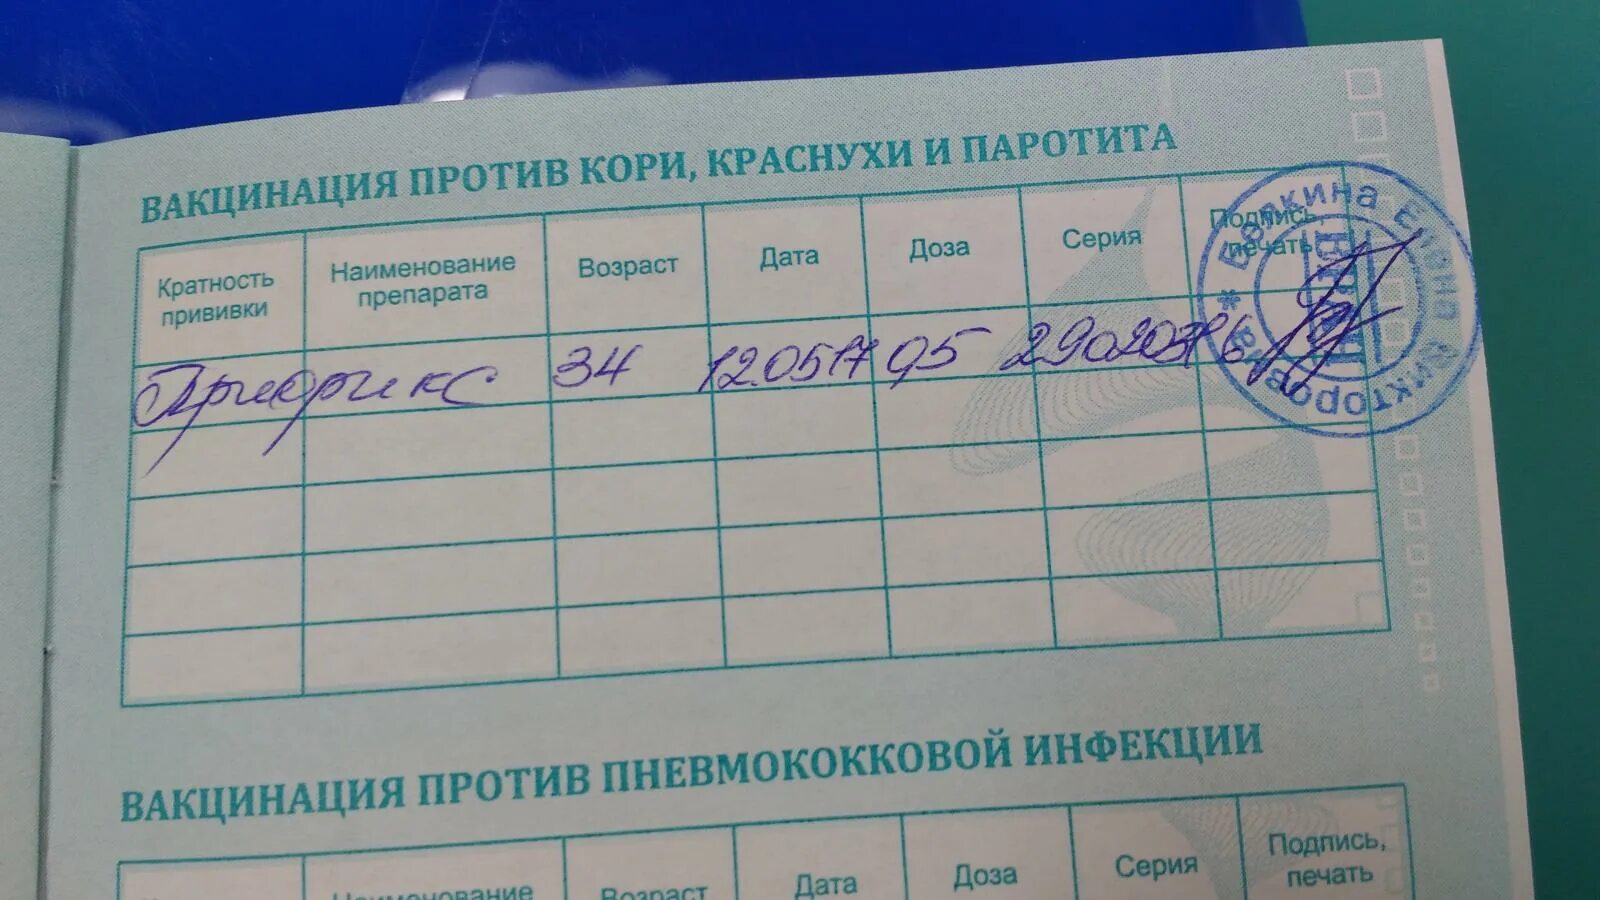 ВАКЦИНАЦИЯ ПРОТИВ КОРИ, КРАСНУХИ И ПАРОТИТА
Кратность прививки
Наименование препарата
Возраст
Дата
Доза
Серия
Подпись, печать
34 12.05.17 0,5
Елена Викторовна *
ВРАЧ
ВАКЦИНАЦИЯ ПРОТИВ ПНЕВМОКОККОВОЙ ИНФЕКЦИИ
Наименование
Возраст
Дата
Доза
Серия
Подпись, печать